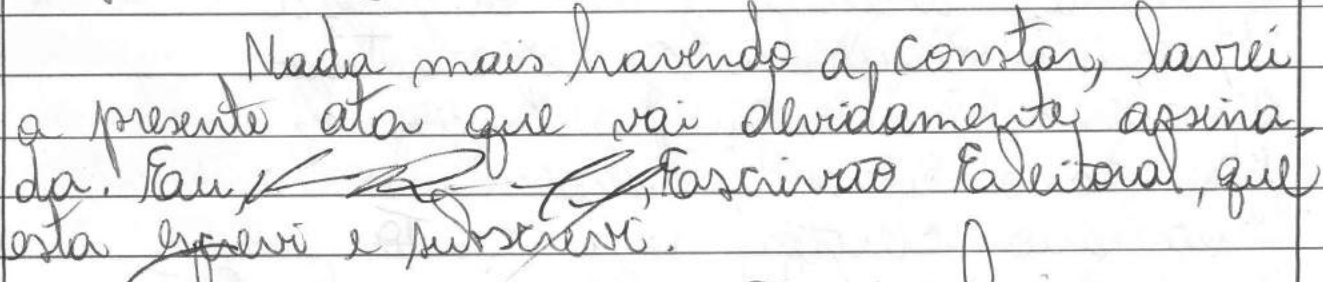 Nada mais havendo a constar, lavrei
a presente ata que vai devidamente assina-
da. Eu, , Escrivão Eleitoral, que
esta escrevi e subscrevi.